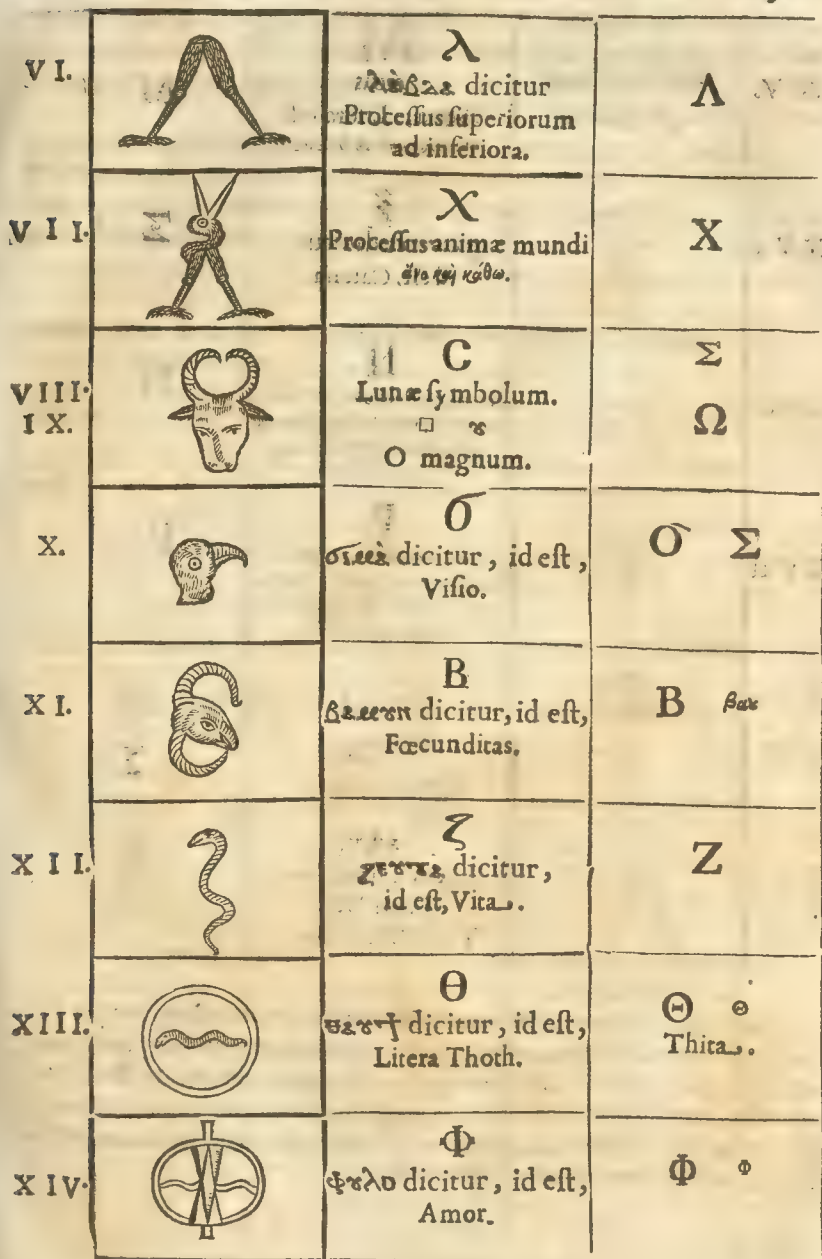 VI.
λ
dicitur
Processus superiorum
ad inferiora.
Λ
VII.
X
Processus animæ mundi
ἄνο καὶ κάθω.
X
VIII.
IX.
C
Lunæ symbolum.
□ ȣ
O magnum.
Σ
Ω
X.
σ
dicitur, id eſt,
Viſio.
σ Σ
XI.
B
dicitur, id eſt,
Fœcunditas.
B βαȣ
XII.
ζ
dicitur,
id eſt, Vita.
Z
XIII.
Θ
dicitur, id eſt,
Litera Thoth.
Θ Θ
Thita.
XIV.
Φ
dicitur, id eſt,
Amor.
Φ Φ